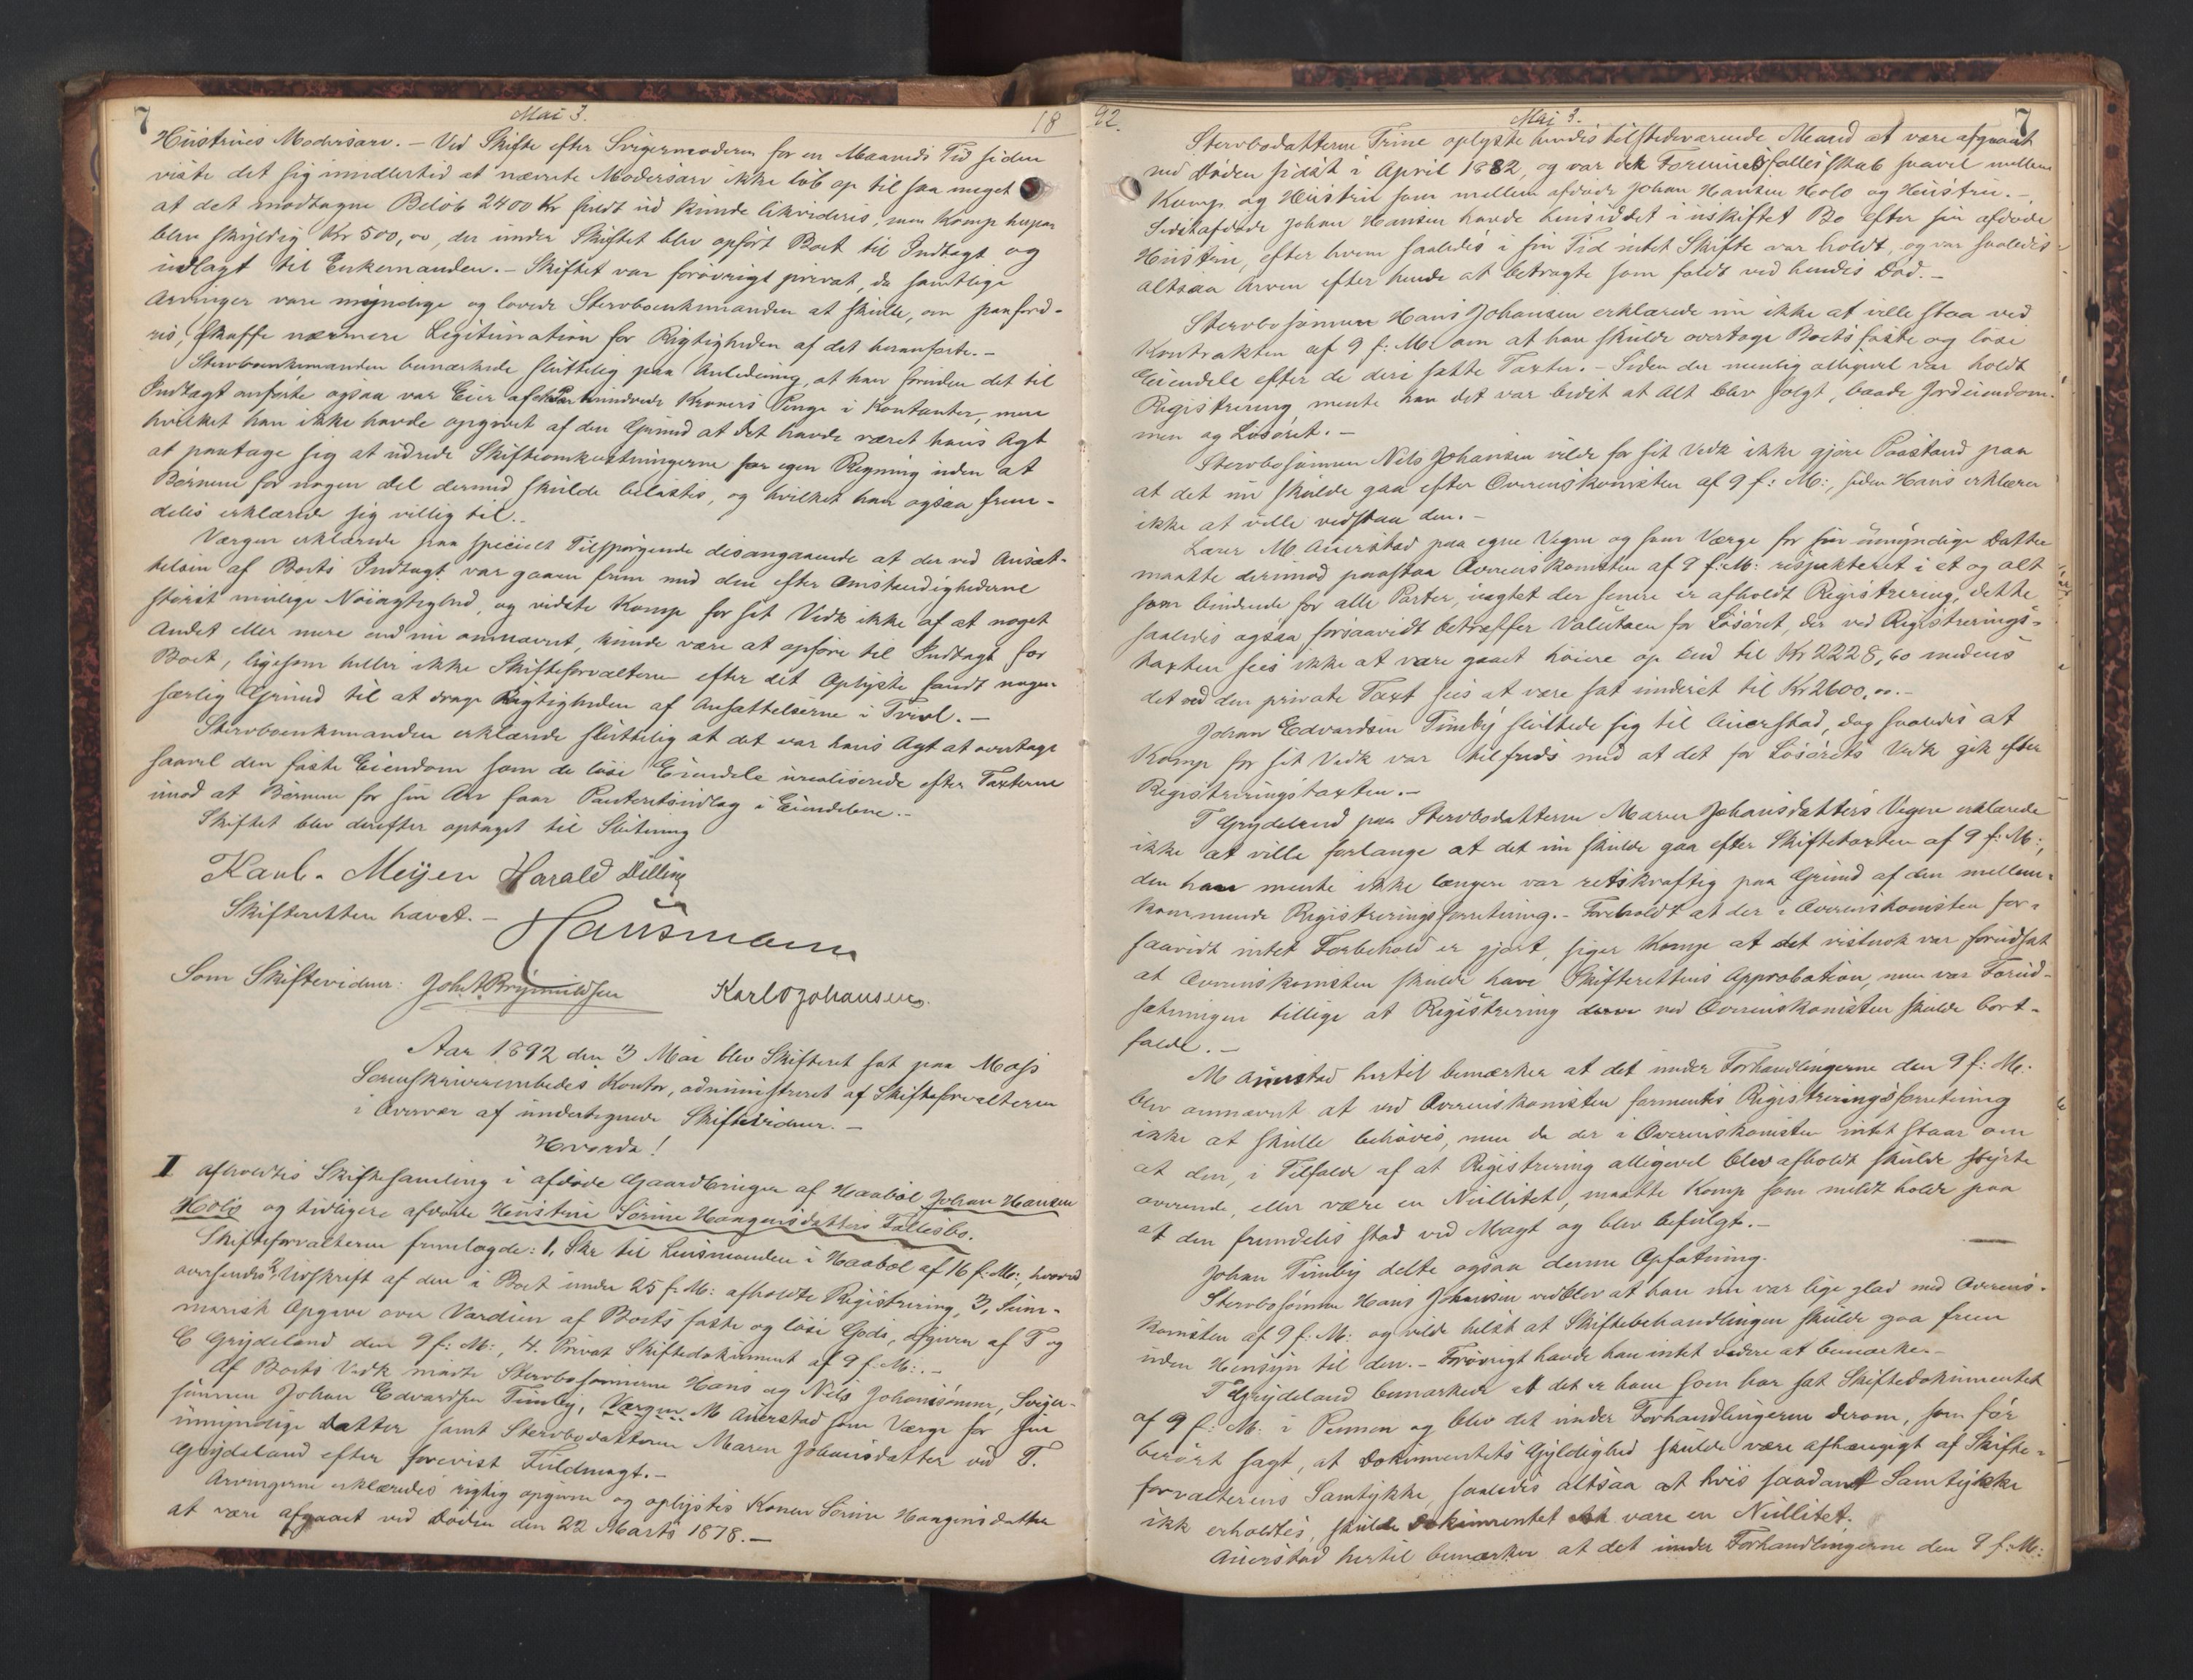 7
Mai 3.
18
Hustrues Modersarv. - Ved Skifte efter Svigermoderen for en Maaneds Tid siden
viste det sig imidlertid at nævnte Modersarv ikke løb op til saa meget
at det modtagne Beløb 2400 Kr fuldt ud kunde likvideres, men Komp
blev skyldig Kr 500,00, der under Skiftet blev opført Boet til Indtægt og
udlagt til Enkemanden. - Skiftet var forøvrigt privat, da samtlige
Arvinger vare myndige og lovede Stervboenkemanden at skulle, om paaford-
res, skaffe nærmere Legitimation for Rigtigheden af det heranførte. -
Stervboenkemanden bemærkede sluttelig paa Anledning, at han foruden det til
Indtægt anførte ogsaa var Eier af et Par hundrede Kroners Penge i Kontanter, men
hvilket han ikke havde opgivet af den Grund at det havde været hans Agt
at paatage sig at udrede Skifteomkostningerne for egen Regning uden at
Børnene for nogen del dermed skulde belastes, og hvilket han ogsaa frem-
deles erklærede sig villig til. -
Værgen erklærede paa specielt Tilspørgende desangaaende at der ved Ansæt-
telsen af Boets Indtægt var gaaen frem med den efter Omstændighederne
størst mulige Nøiagtighed, og vidste Komp for sit Vedk ikke af at noget
Andet eller mere end nu omnævnt, kunde være at opføre til Indtægt for
Boet, ligesom heller ikke Skifteforvalteren efter det Oplyste fandt nogen
særlig Grund til at drage Rigtigheden af Ansættelserne i Tvivl. -
Stervboenkemanden erklærede sluttelig at det var hans Agt at overtage
saavel den faste Eiendom som de løse Eiendele urealiserede efter Taxterne
imod at Børnene for sin Arv faar Panteretsudlæg i Eiendelene. -
Skiftet blev derefter optaget til Slutning
Karl. Meyer Harald Dilling
Skifteretten hævet. -
Hausmann
Som Skiftevidner: Joh. A. Brynildsen Karl O Johansen.
Aar 1892 den 3 Mai blev Skifteret sat paa Moss
Sorenskriverembedes Kontor, administreret af Skifteforvalteren
i Overvær af undertegnede Skiftevidner. -
Hvorda!
I afholdtes Skiftesamling i afdøde Gaardbruger af Haabøl Johan Hansen
Hølis og tidligere afdøde Hustru Sørine Haagensdatters Fællesbo.
Skifteforvalteren fremlagde: 1, Skr til Lensmanden i Haabøl af 16 f. M:, hvorved
oversendes 2, Udskrift af den i Boet under 25 f. M: afholdte Registrering, 3, Sum-
marisk Opgave over Værdien af Boets faste og løse Gods, afgiven af T og
C Grydeland den 9 f: M:, 4. Privat Skiftedokument af 9 f. M:. -
Af Boets Vedk mødte Stervbosønnerne Hans og Nils Johansønner, Sviger-
sønnen Johan Edvardsen Timby, Værgen M Auerstad som Værge for sin
umyndige Datter samt Stervbodatteren Maren Johansdatter ved T.
Grydeland efter forevist Fuldmagt. -
Arvingerne erklæredes rigtig opgivne og oplystes Konen Sørine Haagensdatter
at være afgaaet ved Døden den 22 Marts 1878. -
92.
Mai 3.
7
Stervbodatteren Trine oplyste hendes tilstedeværende Mand at være afgaaet
ved Døden sidst i April 1882, og var der Formuesfællesskab saavel mellem
Komp og Hustru som mellem afdøde Johan Hansen Hølo og Hustru. -
Sidstafdøde Johan Hansen havde hensiddet i uskiftet Bo efter sin afdøde
Hustru, efter hvem saaledes i sin Tid intet Skifte var holdt, og var saaledes
altsaa Arven efter hende at betragte som faldt ved hendes Død. -
Stervbosønnen Hans Johansen erklærede nu ikke at ville staa ved
Kontrakten af 9 f: M: om at han skulde overtage Boets faste og løse
Eiendele efter de deri satte Taxter. - Siden der nemlig alligevel var holdt
Registrering, mente han det var bedst at Alt blev solgt, baade Jordeiendom-
men og Løsøret. -
Stervbosønnen Nils Johansen vilde for sit Vedk ikke gjøre Paastand paa
at det nu skulde gaa efter Overenskomsten af 9 f: M:, siden Hans erklærer
ikke at ville vedstaa den. -
Lærer M Auerstad paa egne Vegne og som Værge for sin umyndige Datter
maatte derimod paastaa Overenskomsten af 9 f: M: respekteret i et og alt
som bindende for alle Parter, uagtet der senere er afholdt Registrering, dette
saaledes ogsaa forsaavidt betræffer Valutaen for Løsøret, der ved Registrerings-
taxten sees ikke at være gaaet høiere op end til Kr 2228,60 medens
det ved den private Taxt sees at være sat underet til Kr 2600,00. -
Johan Edvardsen Timby sluttede sig til Auerstad, dog saaledes at
Komp for sit Vedk var tilfreds med at det for Løsørets Vedk gik efter
Registreringstaxten. -
T Grydeland paa Stervbodatteren Maren Johansdatters Vegne erklærede
ikke at ville forlange at det nu skulde gaa efter Skiftetaxten af 9 f: M:,
den han mente ikke længere var retskraftig paa Grund af den mellem-
kommende Registreringsforretning. - Foreholdt at der i Overenskomsten for-
saavidt intet Forbehold er gjort, siger Komp at det vistnok var forudsat
at Overenskomsten skulde have Skifterettens Approbation, men var Forud-
sætningen tillige at Registrering ved Overenskomsten skulde bort-
falde. -
M Auerstad hertil bemærker at det under Forhandlingerne den 9 f: M:
blev omnævnt at ved Overenskomsten formentes Registreringsforretning
ikke at skulle behøves, men da der i Overenskomsten intet staar om
at den, i Tilfælde af at Registrering alligevel blev afholdt skulde styrte
overende, eller være en Nullitet, maatte Komp som meldt holde paa
at den fremdeles stod ved Magt og blev befulgt. -
Johan Timby delte ogsaa denne Opfatning.
Stervbosønnen Hans Johansen vedblev at han nu var lige glad med Overens-
komsten af 9 f. M: og vilde helst at Skiftebehandlingen skulde gaa frem
uden Hensyn til den. - Forøvrigt havde han intet videre at bemærke. -
T Grydeland bemærkede at det er ham som har sat Skiftedokumentet
af 9 f: M: i Pennen og blev det under Forhandlingerne derom, som før
berørt sagt, at Dokumentets Gyldighed skulde være afhængigt af Skifte-
forvalterens Samtykke, saaledes altsaa at hvis saadant Samtykke
ikk erholdtes, skulde Dokumentet være en Nullitet.
Auerstad hertil bemærker at det under Forhandlingerne den 9 f: M: